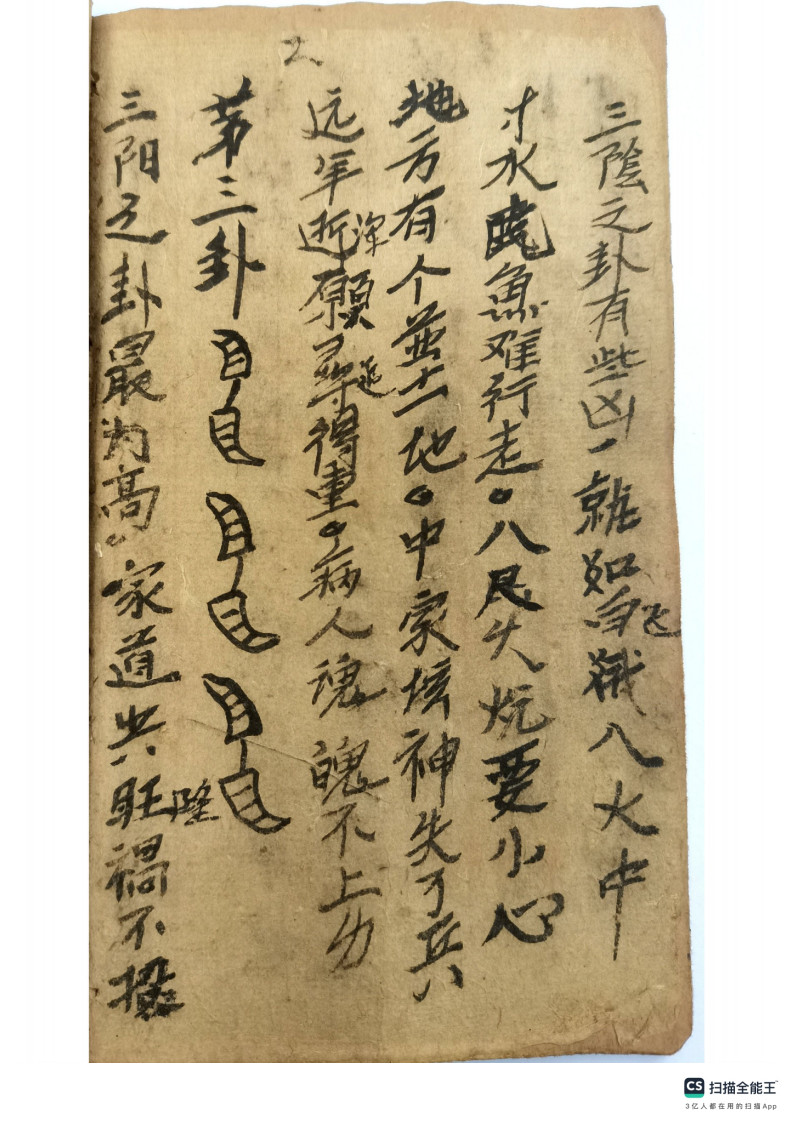 三陰之卦有些凶、就如飞蛾八火中
寸水魚难行走。八艮火炕要小心
地方有个土地。中家坛神失了兵
远年逝願尋得重。病人魂魄不上身
第三卦
三阳之卦最为高。家道兴旺禍不
隆
扫描全能王
3亿人都在用的扫描App